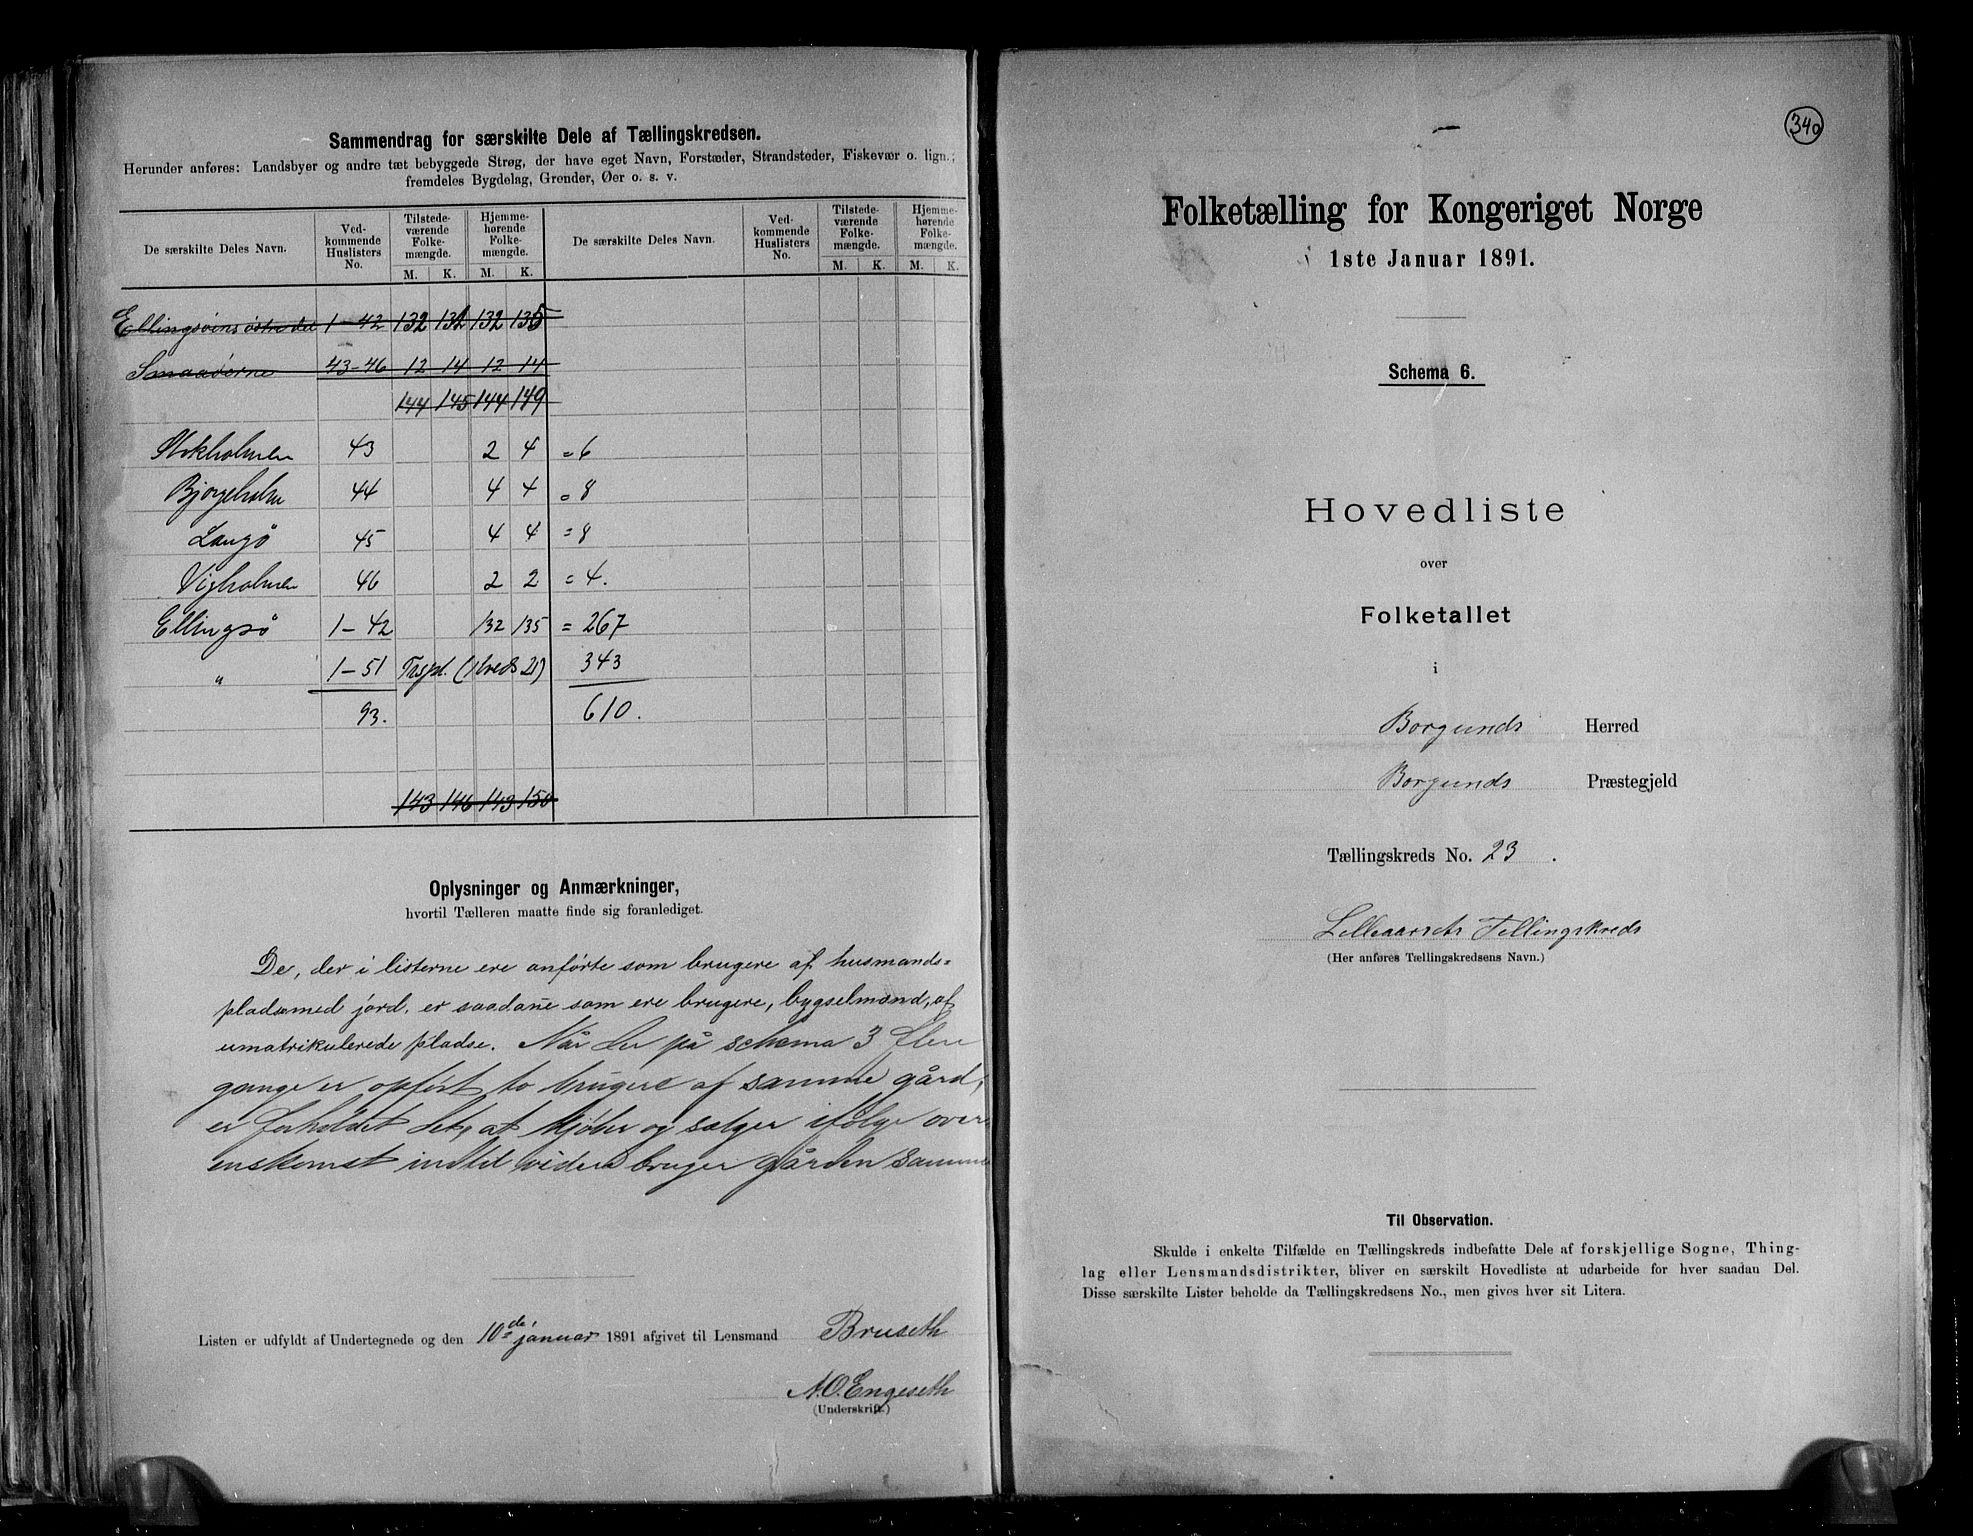 Sammendrag for særskilte Dele af Tællingskredsen.
Herunder anføres: Landsbyer og andre tæt bebyggede Strøg, der have eget Navn, Forstæder, Strandsteder, Fiskevær o. lign.;
fremdeles Bygdelag, Grender, Øer o. s. v.
De særskilte Deles Navn. Ved-kommende Huslisters No. Tilstede-værende Folke-mængde. Hjemme-hørende Folke-mængde. De særskilte Deles Navn. Ved-kommende Huslisters No. Tilstede-værende Folke-mængde. Hjemme-hørende Folke-mængde.
M. K. M. K. M. K. M. K.
Ellingsøens østre del 1-42 132 131 132 135
Smaaøerne 43-46 12 14 12 14
144 145 144 149
Stokholmen 43 2 4 = 6
Bjørgeholm 44 4 4 = 8
Langø 45 4 4 = 8
Vigholmen 46 2 2 = 4.
Ellingsø 1-42 132 135 = 267
" 1-51 (kreds 21) 343
93. 610.
143 146 143 150
Oplysninger og Anmærkninger,
hvortil Tælleren maatte finde sig foranlediget.
De, der i listerne ere anførte som brugere af husmands=
pladsemed jord, er saadane som ere brugere, bygselmænd, af
umatrikulerede pladse. Når der på schema 3 flere
gange er opført to brugere af samme gård,
er forholdet det, at kjøber og sælger ifølge over
enskomst indtil videre bruger gården samme
Listen er udfyldt af Undertegnede og den 10de januar 1891 afgivet til Lensmand Bruseth
A.O. Engeseth
(Underskrift.)
340
Folketælling for Kongeriget Norge
1ste Januar 1891.
Schema 6.
Hovedliste
over
Folketallet
i
Borgunds Herred
Borgunds Præstegjeld
Tællingskreds No. 23.
Lillevarsets Tellingskreds
(Her anføres Tællingskredsens Navn.)
Til Observation.
Skulde i enkelte Tilfælde en Tællingskreds indbefatte Dele af forskjellige Sogne, Thing-
lag eller Lensmandsdistrikter, bliver en særskilt Hovedliste at udarbeide for hver saadan Del.
Disse særskilte Lister beholde da Tællingskredsens No., men gives hver sit Litera.